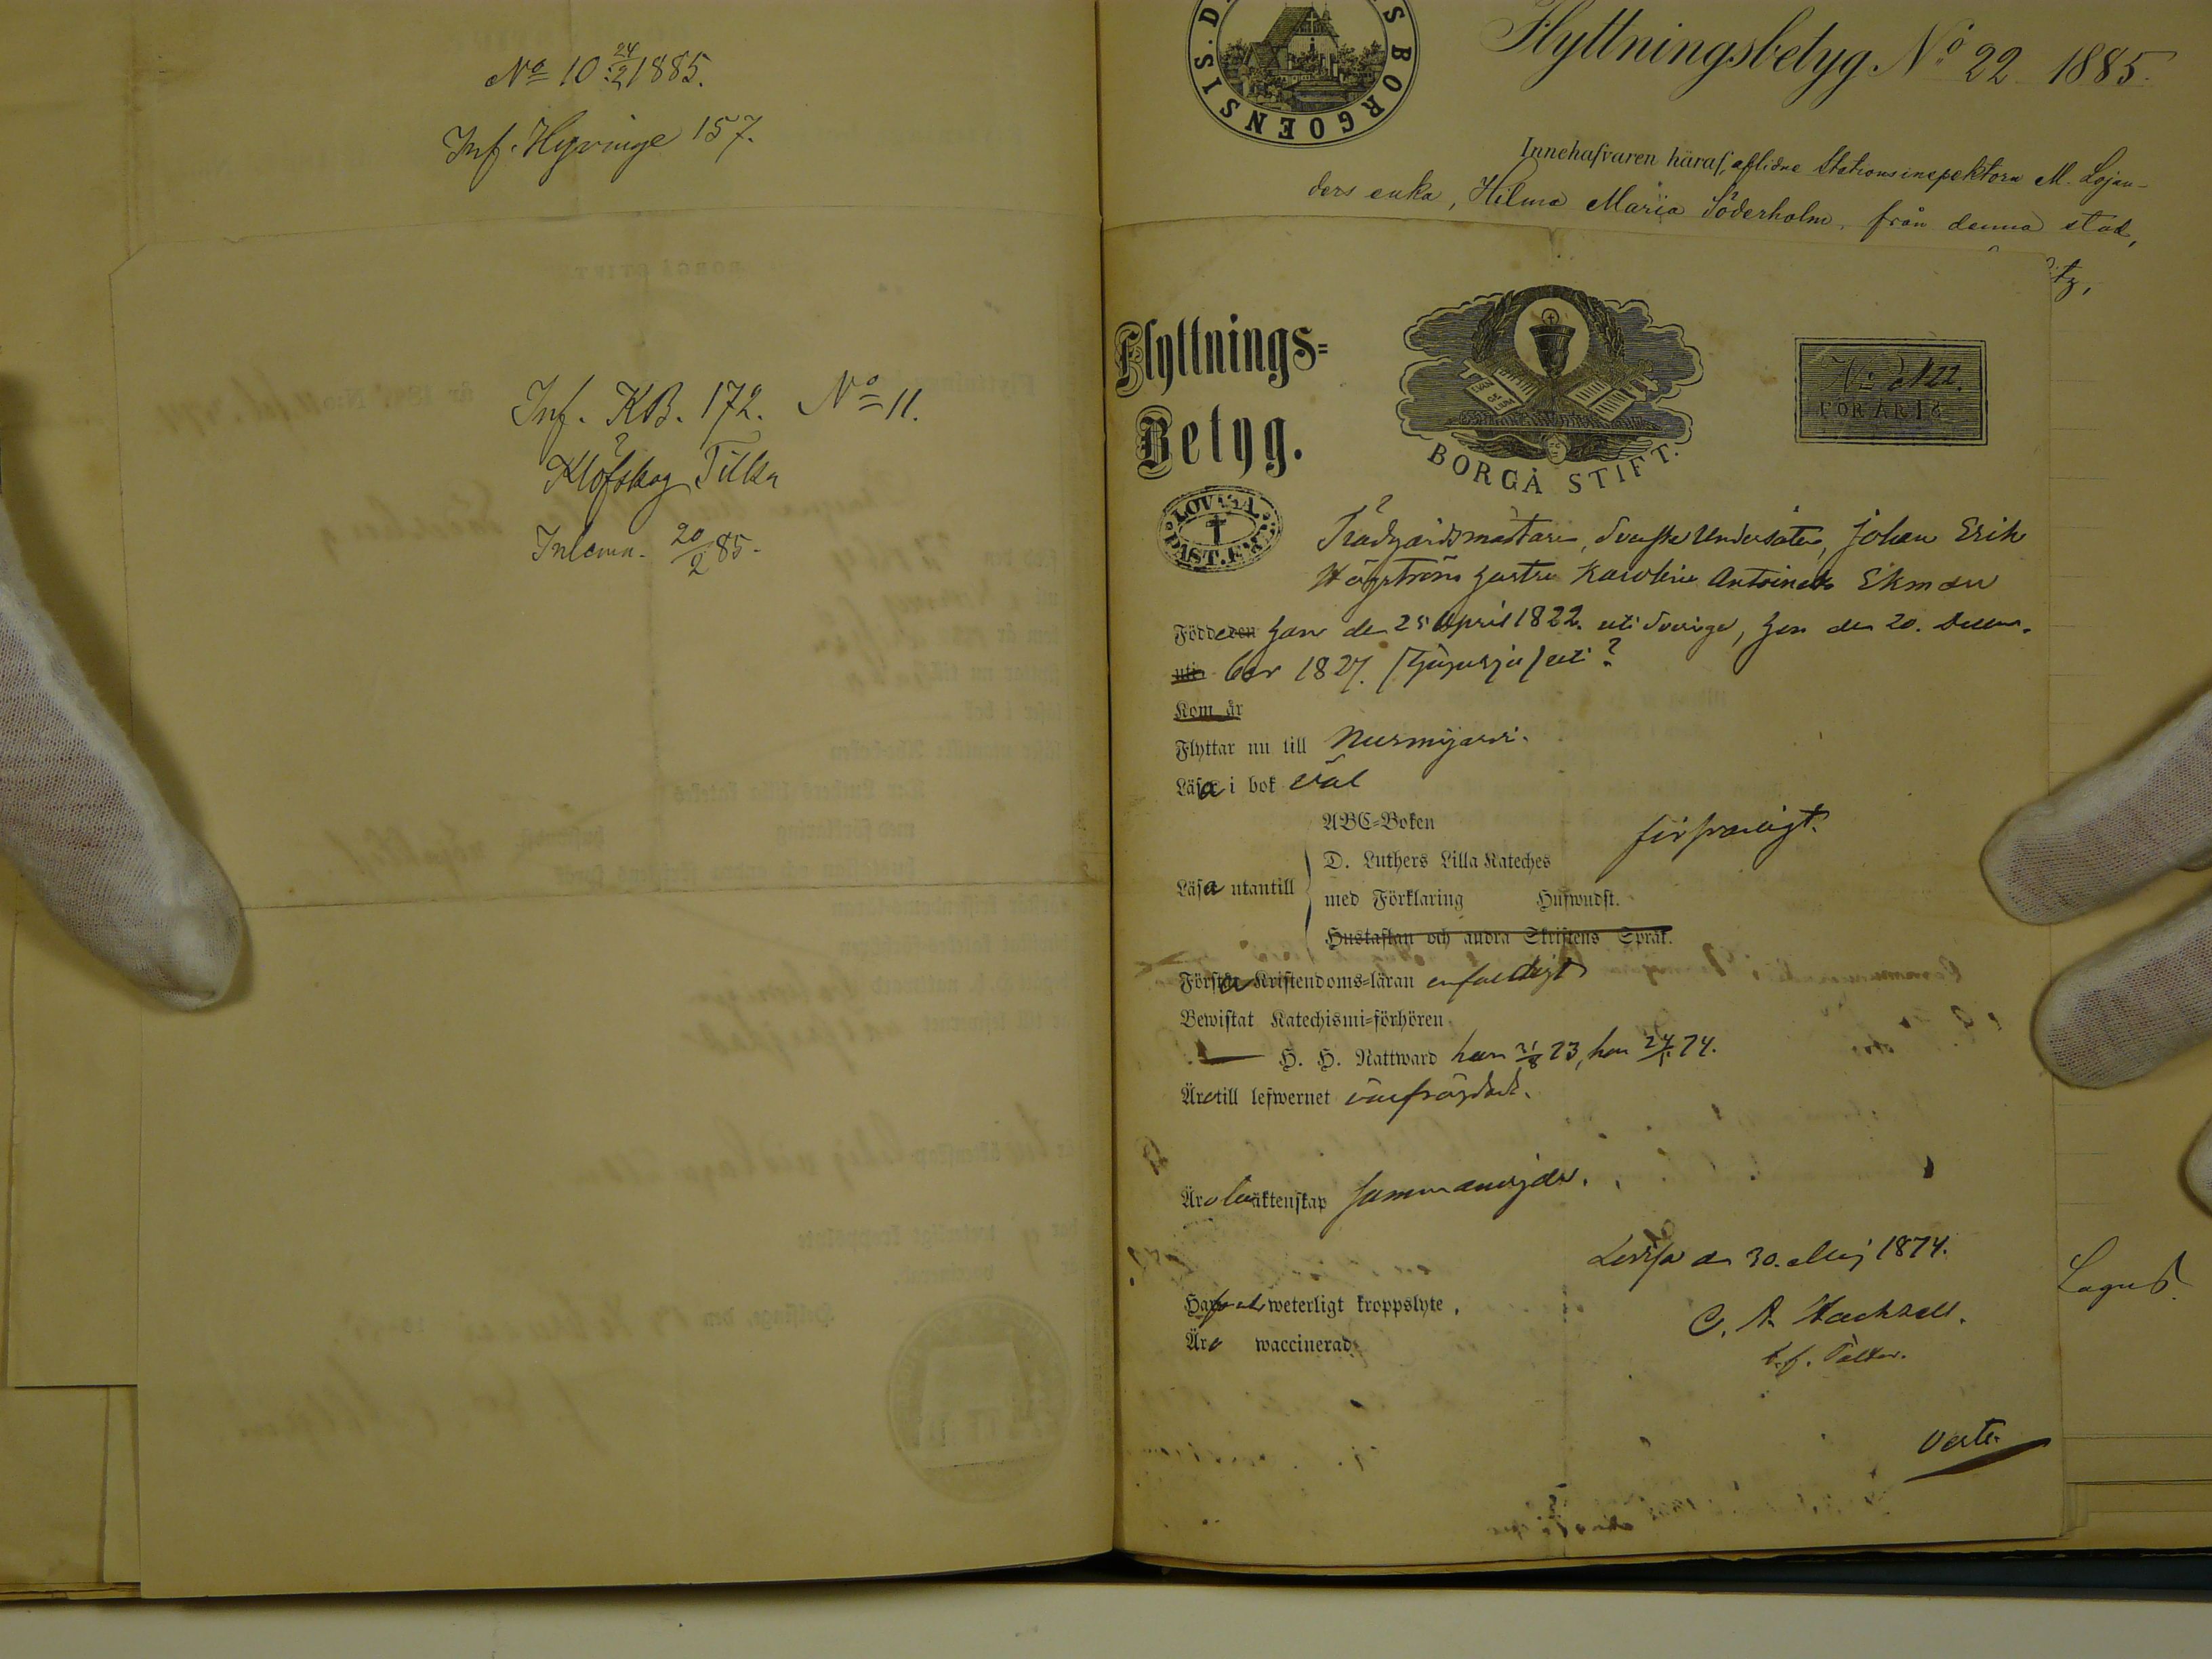 No 10 24/2 1885.
Inf. Hyvinge 157.
Inf. KB. 172. No 11.
Klöfskog Tilka
Inlemn. 20/2 85.
BORGOENSIS
Flyttningsbetyg No 22 1885.
Innehafvaren häraf, aflidne Stationsinspektorn M. Lojan-
ders enka, Hilma Maria Söderholm, från denna stad,
Flyttnings-
Betyg.
EVAN GE LIUM
BORGÅ STIFT.
No 122.
FÖR ÅR 18
LOVISA
PAST.
Trädgårdsmästaren, Svenske Undersåten, Johan Erik
Hägström hustru Karolina Antoinetta Ekman
Födde den han den 25 April 1822. uti Sverige, hon den 20. Decem-
uti ber 1827. uti ?
Kom år
Flyttar nu till Nurmijärvi.
Läsa i bok väl
ABC-Boken
D. Luthers Lilla Kateches
försvarligt.
Läsa utantill
med Förklaring Hufwudst.
Hustaflan och andra Skriftens Språk.
Förstå Kristendoms-läran enfaldigt
Bewistat Katechismi-förhören
H. H. Nattward han 31/8 73, hon 24/1 74.
Äro till lefwernet oförvitliga
Äro äktenskap sammanvigde.
Lovisa den 30. Maj 1874.
Hafva weterligt kroppslyte,
C. A.
Äro waccinerad
t. f. Pastor.
Lagus.
Verte